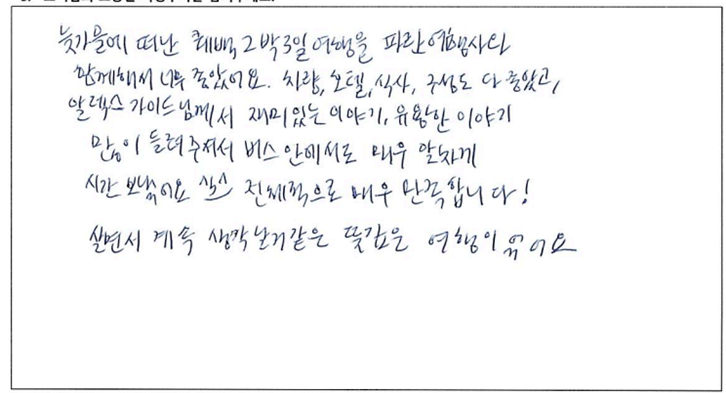 늦가을에 떠난 퀘백 2박3일 여행을 파란여행사와
함께해서 너무 좋았어요. 차량, 호텔, 식사, 구성도 다 좋았고,
알렉스 가이드님께서 재미있는 이야기, 유용한 이야기
많이 들려주셔서 버스 안에서도 매우 알차게
시간 보냈어요 ^^ 전체적으로 매우 만족합니다!
살면서 계속 생각날거같은 뜻깊은 여행이었어요